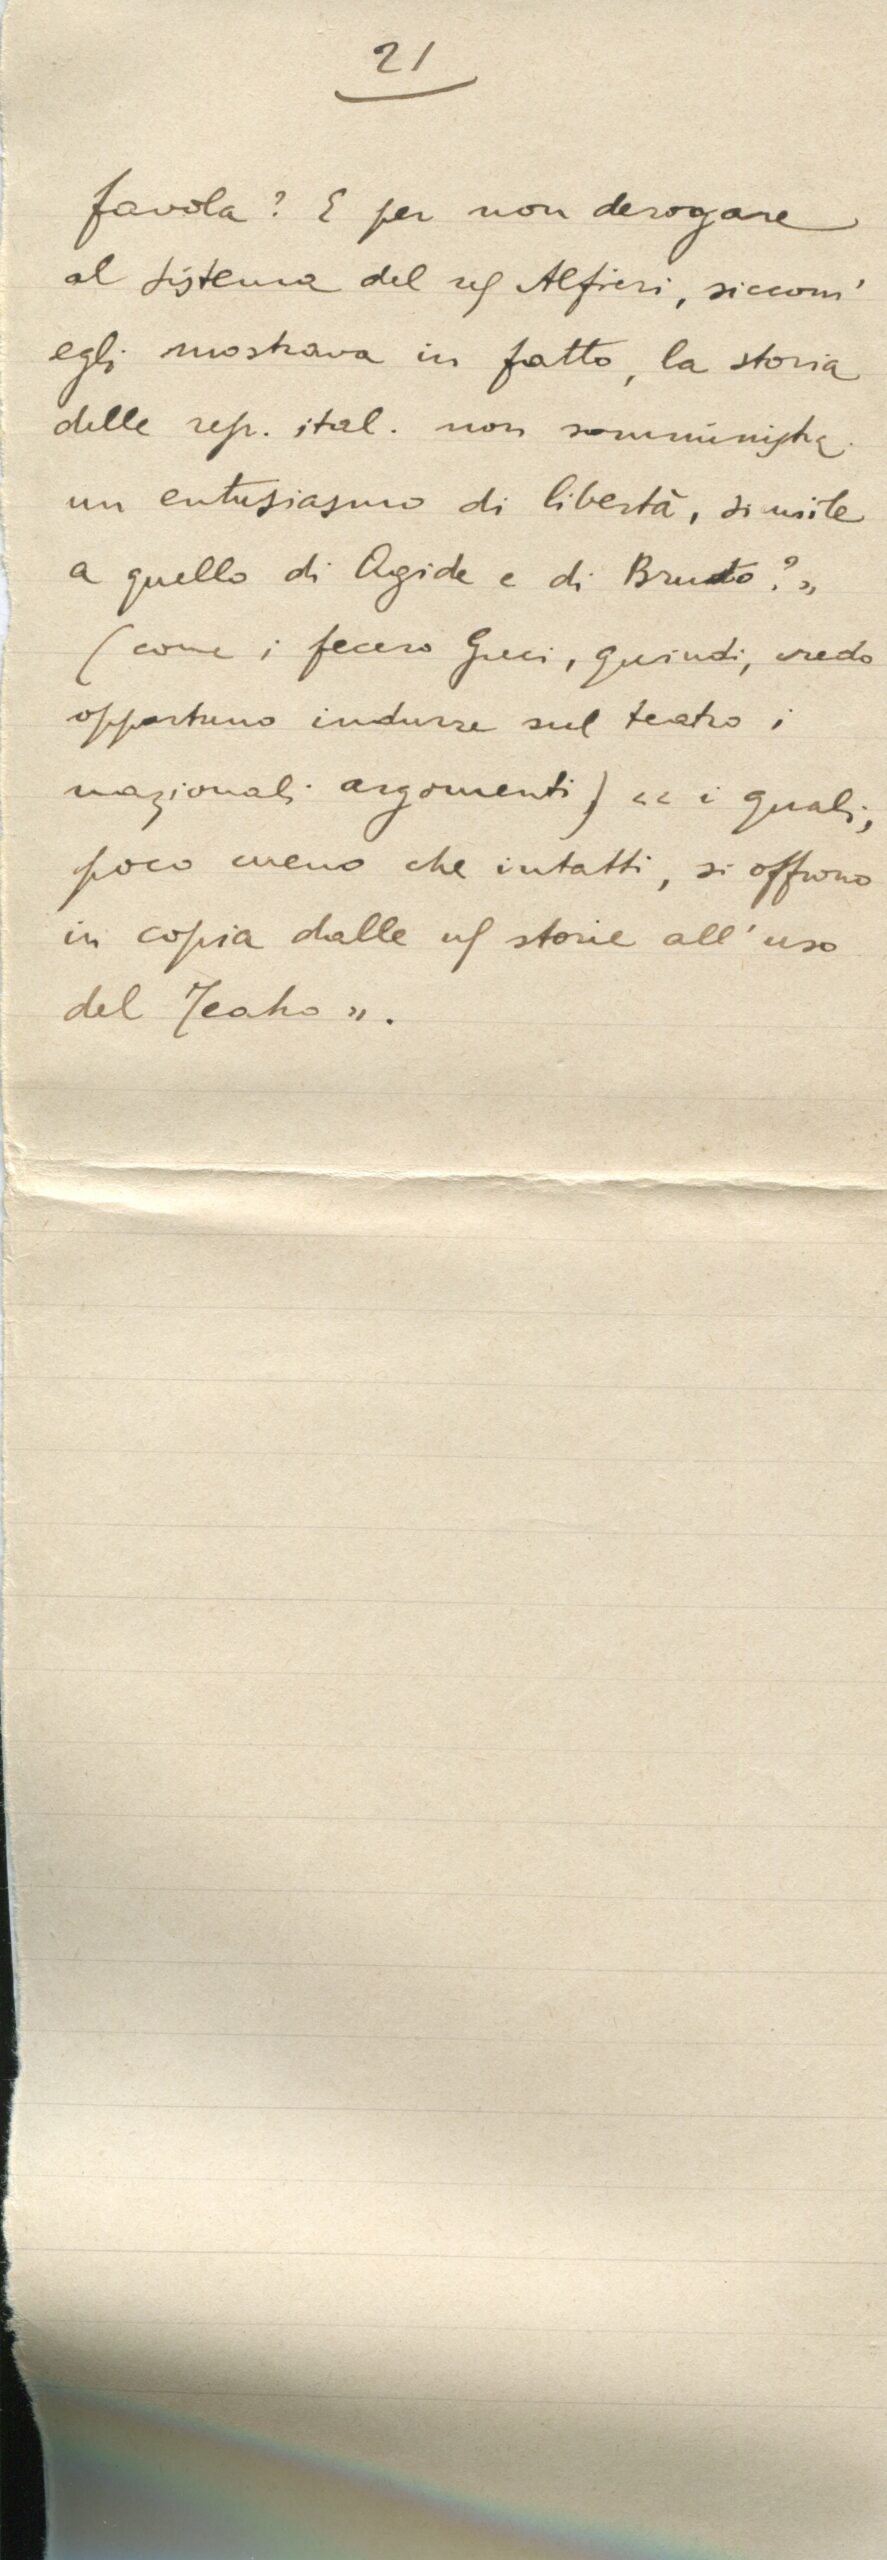 21
favola? E per non derogare
al sistema del Alfieri, siccom'
egli mostrava in fatto, la storia
delle rep. ital. non somministra
un entusiasmo di libertà, simile
a quello di Agide e di Bruto?»
(come i fecero Greci, quindi, credo
opportuno indurre sul teatro i
nazionali argomenti) «i quali,
poco meno che intatti, si offrono
in copia dalle storie all'uso
del Teatro».